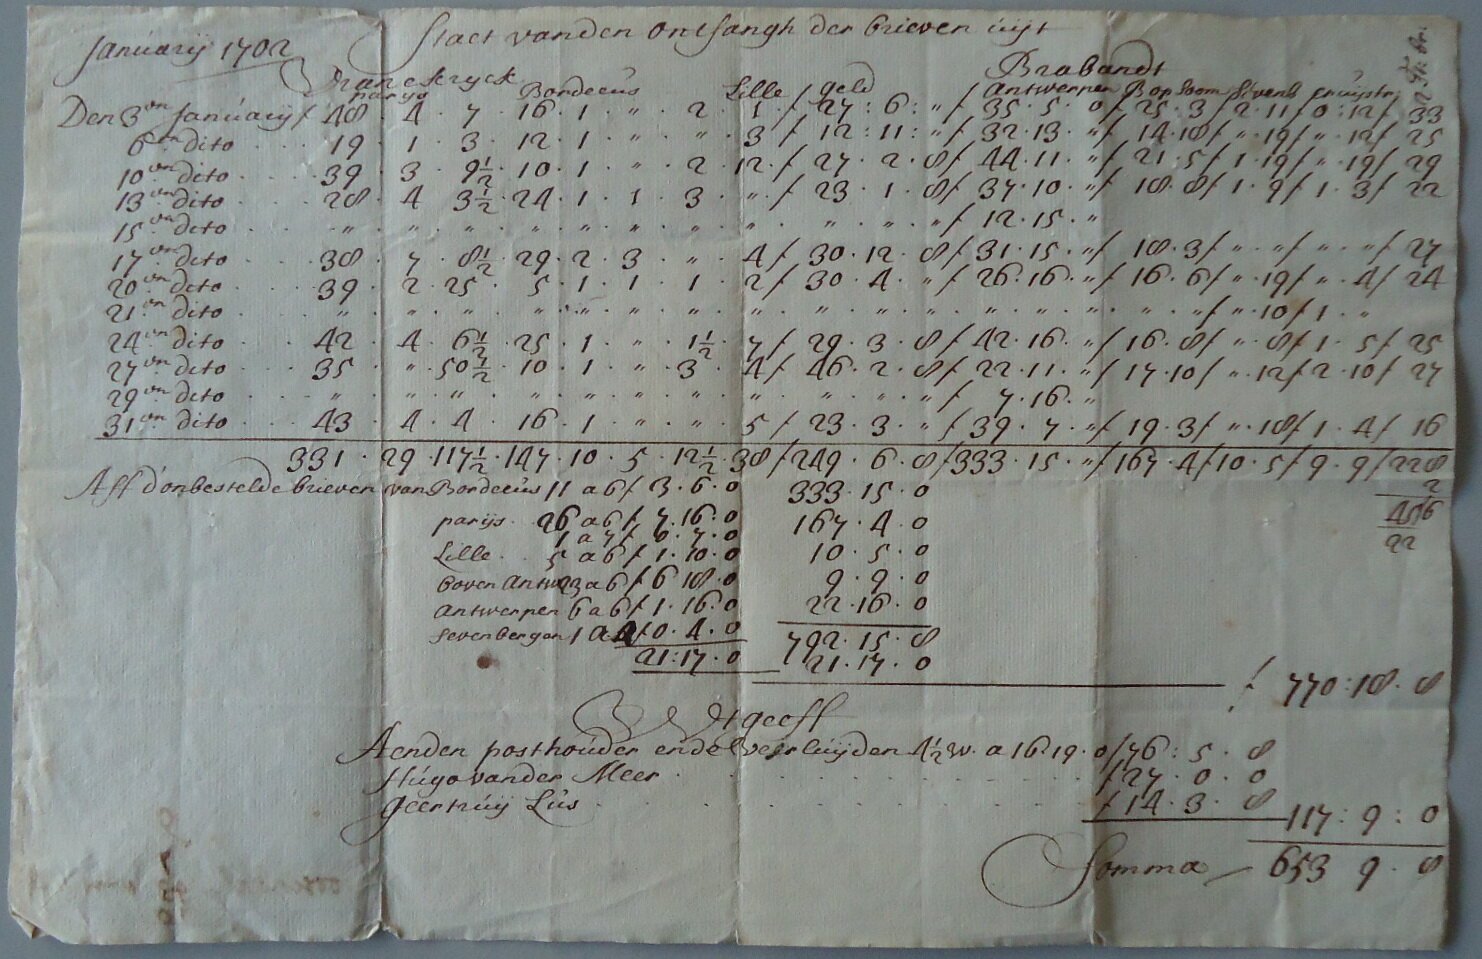 Januarij 1702 Staet vanden Ontfangh der brieven uijt
Vranckryck Brabandt
parys Bordeeus Lille / geld / Antwerpen / Bop Soom / Sevenb / pruijstr
Den 3en Januarij / 48 · 4 · 7 · 16 · 1 · " · 2 · 1 / 27 : 6 : " / 35 · 5 · 0 / 25 · 3 / 2 · 11 / 0 : 12 / 33
6en dito 19 · 1 · 3 · 12 · 1 · " · " · 3 / 12 : 11 : " / 32 · 13 · " / 14 · 18 / " · 19 / " · 12 / 25
10en dito 39 · 3 · 9½ · 10 · 1 · " · 2 · 12 / 27 · 2 · 8 / 44 · 11 · " / 21 · 5 / 1 · 19 / " · 19 / 29
13en dito 28 · 4 · 3½ · 24 · 1 · 1 · 3 · " / 23 · 1 · 8 / 37 · 10 · " / 18 · 8 / 1 · 9 / 1 · 3 / 22
15en dito " · " · " · " · " · " · " · " · " · " · " / 12 · 15 · "
17en dito 38 · 7 · 8½ · 29 · 2 · 3 · " · 4 / 30 · 12 · 8 / 31 · 15 · " / 18 · 3 / " · " / " · " / 27
20en dito 39 · 2 · 25 · 5 · 1 · 1 · 1 · 2 / 30 · 4 · " / 26 · 16 · " / 16 · 6 / " · 19 / " · 4 / 24
21en dito " · " · " · " · " · " · " · " · " · " · " · " · " · " · " · " / " · 10 / 1 · "
24en dito 42 · 4 · 6½ · 25 · 1 · " · 1½ · 7 / 29 · 3 · 8 / 42 · 16 · " / 16 · 8 / " · 8 / 1 · 5 / 25
27en dito 35 · " · 50½ · 10 · 1 · " · 3 · 4 / 46 · 2 · 8 / 22 · 11 · " / 17 · 10 / " · 12 / 2 · 10 / 27
29en dito " · " · " · " · " · " · " · " · " · " · " / 7 · 16 · "
31en dito 43 · 4 · 4 · 16 · 1 · " · " · 5 / 23 · 3 · " / 39 · 7 · " / 19 · 3 / " · 18 / 1 · 4 / 16
331 · 29 · 117½ · 147 · 10 · 5 · 12½ · 38 / 249 · 6 · 8 / 333 · 15 · " / 167 · 4 / 10 · 5 / 9 · 9 / 228
Aff d'onbestelde brieven van Bordeeus 11 a 6 / 3 · 6 · 0 333 · 15 · 0 2
parijs 26 a 6 / 7 · 16 · 0 167 · 4 · 0 456
1 a 7 / 0 · 7 · 0 22
Lille 5 a 6 / 1 · 10 · 0 10 · 5 · 0
boven Antw 23 a 6 / 6 18 · 0 9 · 9 · 0
Antwerpen 6 a 6 / 1 · 16 · 0 22 · 16 · 0
sevenbergen 1 a 4 / 0 · 4 · 0 792 · 15 · 8
21 : 17 · 0 21 · 17 · 0
f 770 : 18 · 8
Uijtgeeff
Aenden posthouder ende veerluijden 4½ w. a 16 · 19 · 0 / 76 : 5 · 8
Hugo vander Meer f 27 · 0 · 0
Geertruij Lus f 14 · 3 · 8
117 : 9 : 0
Somma 653 9 · 8